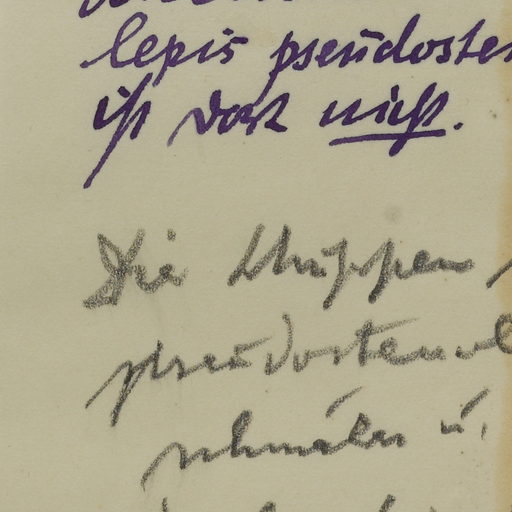 lepis pseudosten
ist dort nicht.
Die Schuppen
pseudostenol
schmäler u.